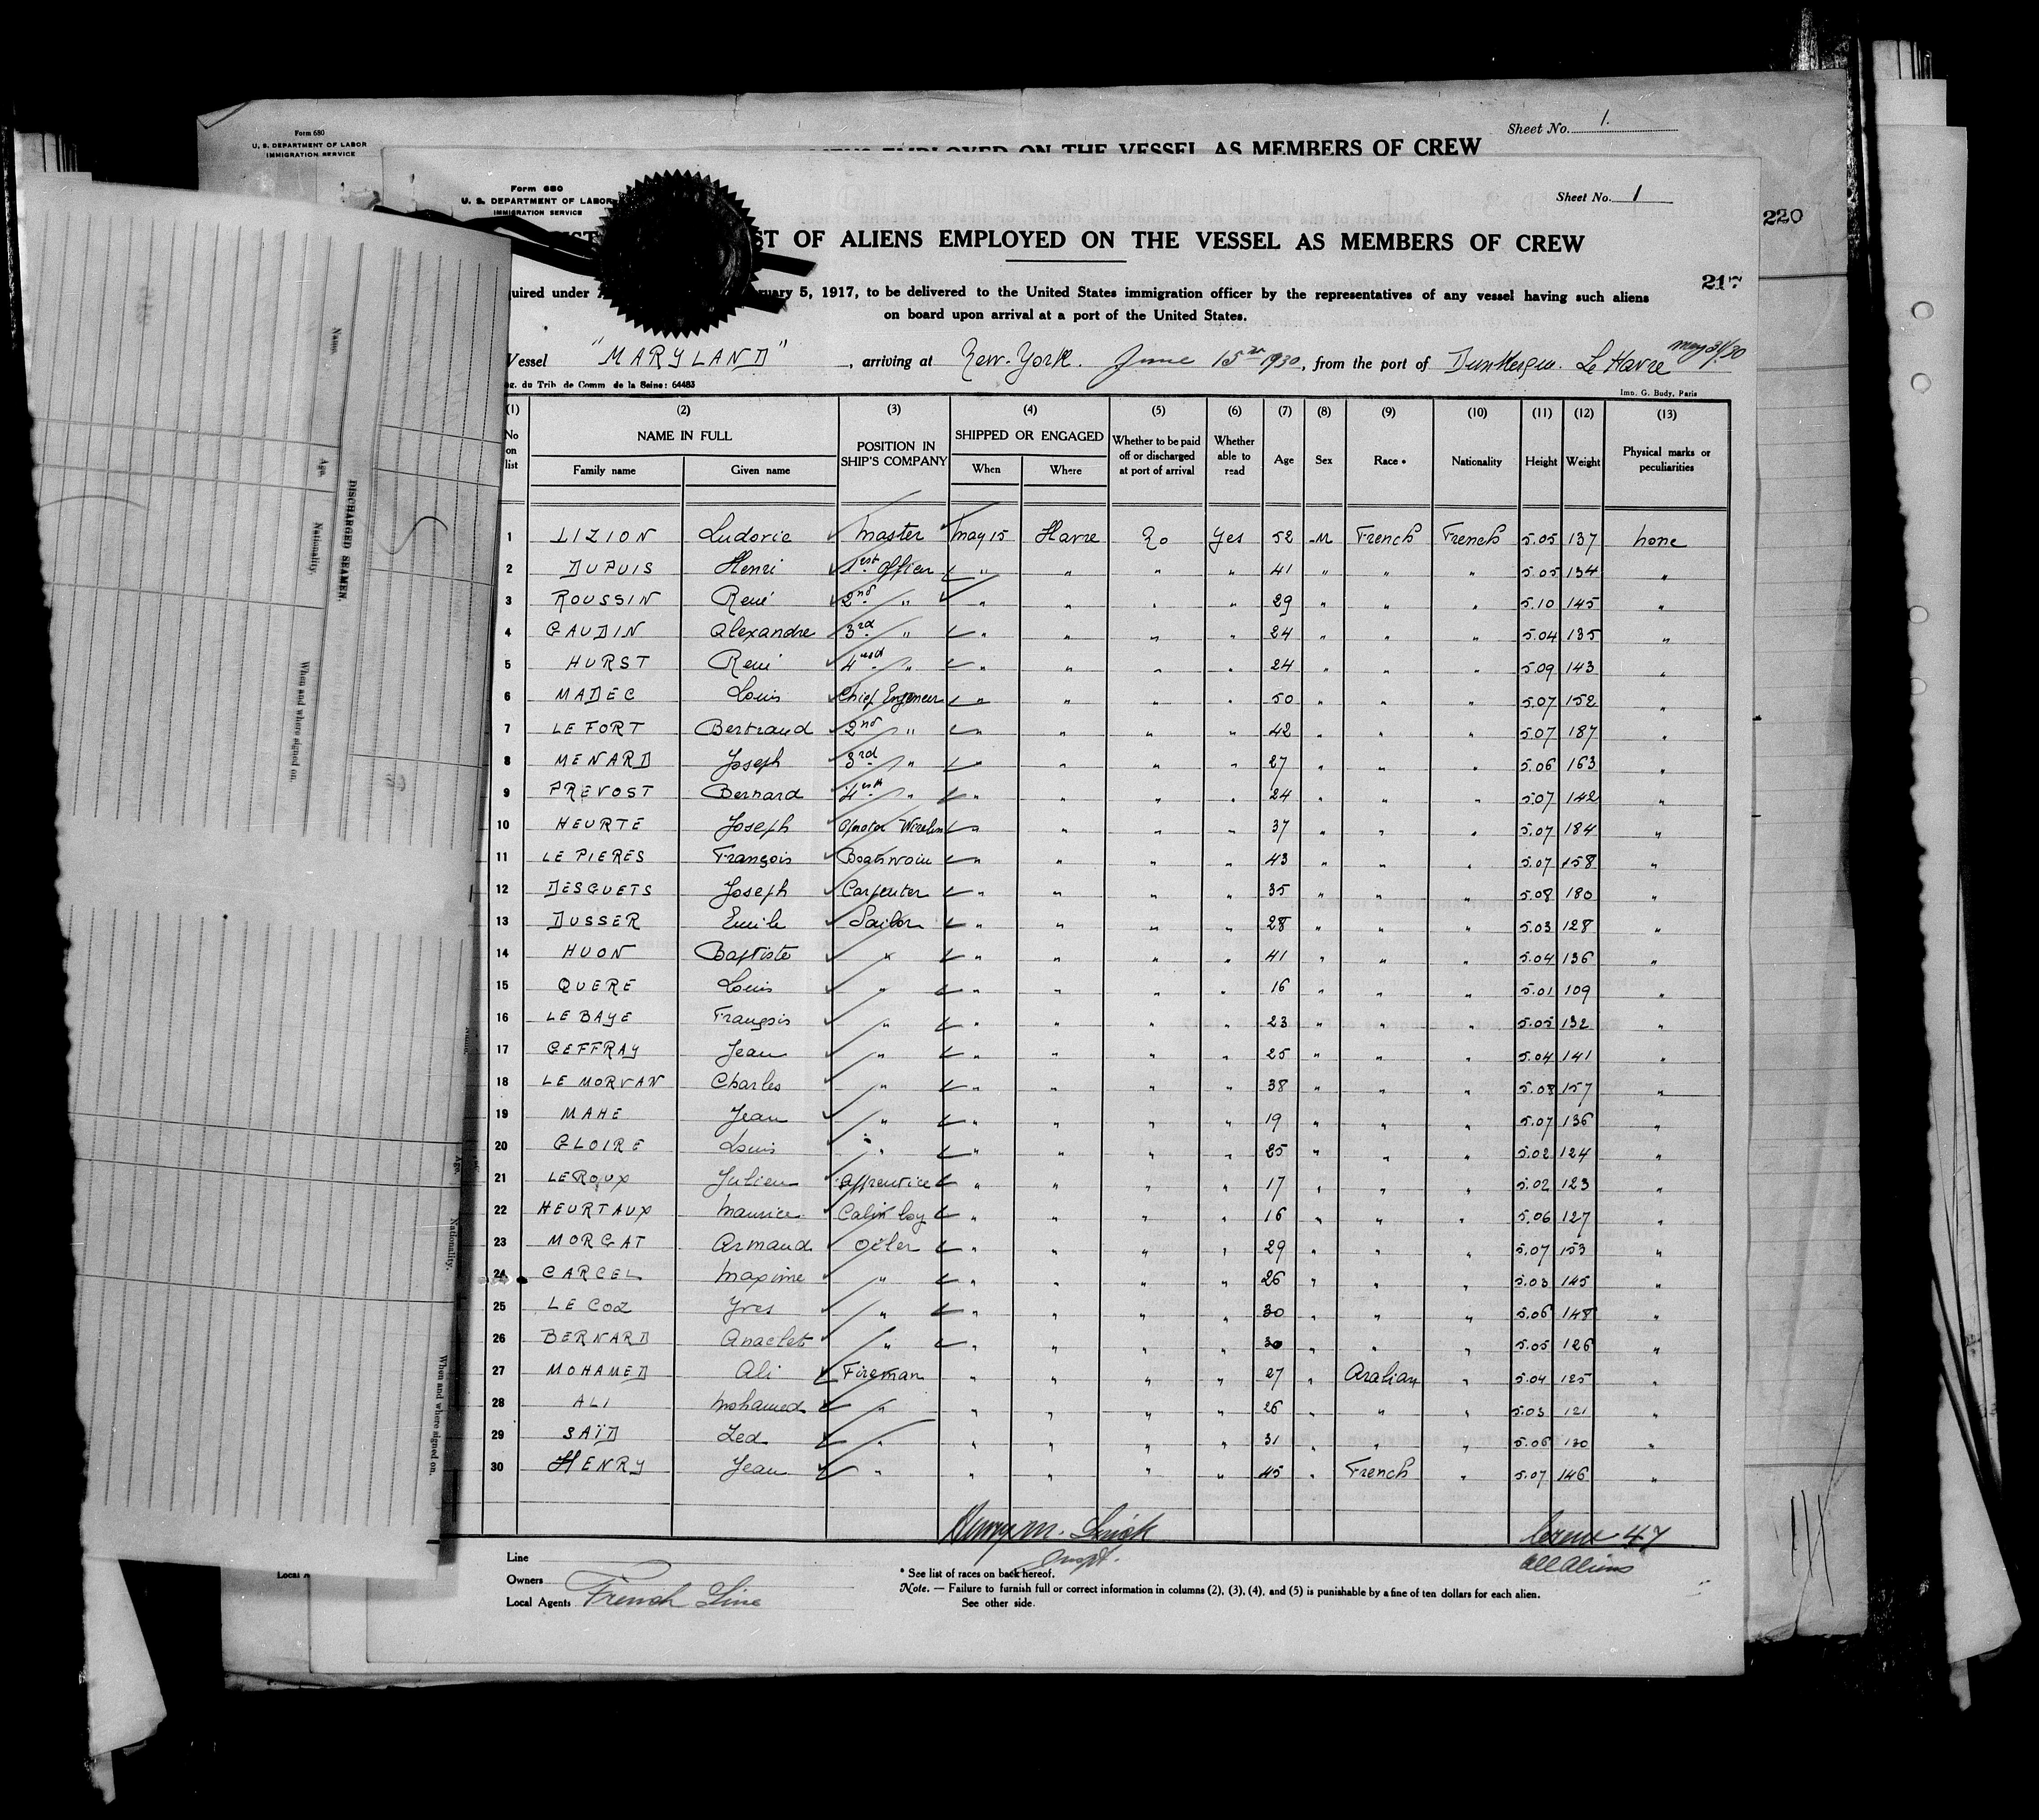 Form 680
U. S. DEPARTMENT OF LABOR
IMMIGRATION SERVICE
Sheet No. 1.
ON THE VESSEL AS MEMBERS OF CREW
Form 680
U. S. DEPARTMENT OF LABOR
IMMIGRATION SERVICE
Sheet No. 1
220
ST OF ALIENS EMPLOYED ON THE VESSEL AS MEMBERS OF CREW
217
quired under A ruary 5, 1917, to be delivered to the United States immigration officer by the representatives of any vessel having such aliens
on board upon arrival at a port of the United States.
Vessel "MARYLAND", arriving at New-York. June 15 1930, from the port of Dunkerque. Le Havre may 31/30
g. du Trib. de Comm. de la Seine: 64483
Imp. G. Budy, Paris
(1) (2) (3) (4) (5) (6) (7) (8) (9) (10) (11) (12) (13)
No on list NAME IN FULL POSITION IN SHIP'S COMPANY SHIPPED OR ENGAGED Whether to be paid off or discharged at port of arrival Whether able to read Age Sex Race * Nationality Height Weight Physical marks or peculiarities
Family name Given name When Where
1 LIZION Ludovic Master May 15 Havre No Yes 52 M French French 5.05 137 none
2 DUPUIS Henri 1est Officer " " " " 41 " " " 5.05 134 "
3 ROUSSIN René 2nd " " " " " 29 " " " 5.10 145 "
4 GAUDIN Alexandre 3rd " " " " " 24 " " " 5.04 135 "
5 HURST René 4 " " " " " 24 " " " 5.09 143 "
6 MADEC Louis Chief Engeneer " " " " 50 " " " 5.07 152 "
7 LE FORT Bertrand 2nd " " " " " 42 " " " 5.07 187 "
8 MENARD Joseph 3rd " " " " " 27 " " " 5.06 163 "
9 PREVOST Bernard 4 " " " " " 24 " " " 5.07 142 "
10 HEURTE Joseph " " " " 37 " " " 5.07 184 "
11 LE PIERES François Boatswain " " " " 43 " " " 5.07 158 "
12 DESGUETS Joseph Carpenter " " " " 35 " " " 5.08 180 "
13 DUSSER Emile Sailor " " " " 28 " " " 5.03 128 "
14 HUON Baptiste " " " " " 41 " " " 5.04 136 "
15 QUERE Louis " " " " " 16 " " " 5.01 109 "
16 LE BAYE François " " " " " 23 " " " 5.05 132 "
17 GEFFRAY Jean " " " " " 25 " " " 5.04 141 "
18 LE MORVAN Charles " " " " " 38 " " " 5.08 157 "
19 MAHE Jean " " " " " 19 " " " 5.07 136 "
20 GLOIRE Louis " " " " " 25 " " " 5.02 124 "
21 LEROUX Julien Apprentice " " " " 17 " " " 5.02 123 "
22 HEURTAUX Maurice Cabin boy " " " " 16 " " " 5.06 127 "
23 MORGAT Armand Oiler " " " " 29 " " " 5.07 153 "
24 CARCEL Maxime " " " " " 26 " " " 5.03 145 "
25 LE COZ Yves " " " " " 30 " " " 5.06 148 "
26 BERNARD Anaclet " " " " " 30 " " " 5.05 126 "
27 MOHAMED Ali Fireman " " " " 27 " Arabian " 5.04 125 "
28 ALI Mohamed " " " " " 26 " " " 5.03 121 "
29 SAÏD Zed " " " " " 31 " " " 5.06 130 "
30 HENRY Jean " " " " " 45 " French " 5.07 146 "
Henry M.
Inspt.
Crew 47
All Aliens
Line
Owners
Local Agents French Line
* See list of races on back hereof.
Note. — Failure to furnish full or correct information in columns (2), (3), (4), and (5) is punishable by a fine of ten dollars for each alien.
See other side.
Local A
DISCHARGED SEAMEN.
Name.
Age.
Nationality.
When and where signed on.
Age.
Nationality.
When and where signed on.